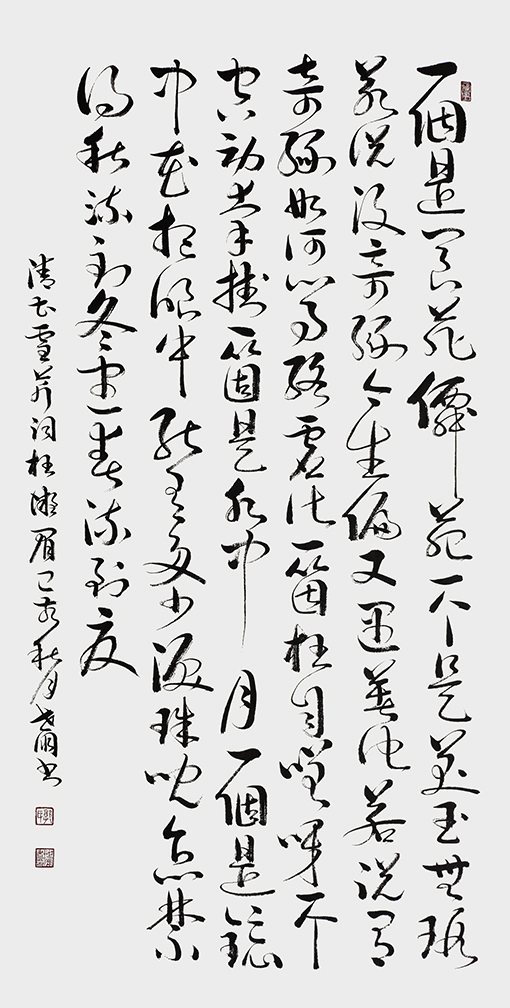 一個是閬苑僊葩一个是美玉無瑕
若說沒奇緣今生偏又遇著他若說有
奇緣如何心事終虛化一箇枉自嗟呀一个
空勞牽掛一箇是水中月一個是鏡
中花想眼中能有多少淚珠兒怎禁
得秋流到冬盡春流到夏
清曹雪芹詞枉凝眉己亥秋月書